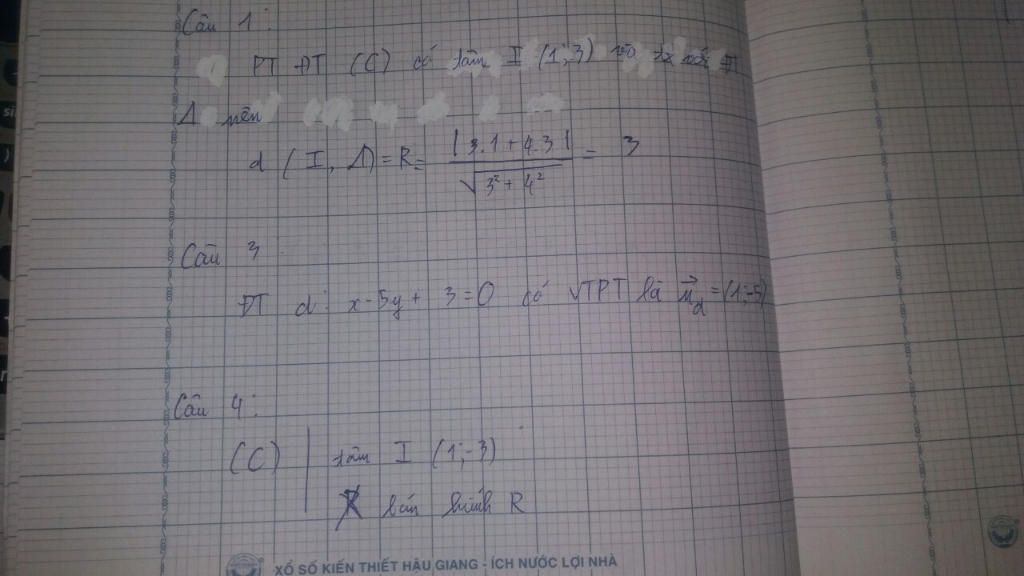 Câu 1:
PT ĐT (C) có tâm I (1;3) và tx với ĐT
Δ nên
d (I, Δ) = R = |3.1 + 4.3| / √(3² + 4²) = 3
Câu 3
ĐT d: x - 5y + 3 = 0 có VTPT là n⃗_d = (1;-5)
Câu 4:
(C) | tâm I (1;-3)
bán kính R
XỔ SỐ KIẾN THIẾT HẬU GIANG - ÍCH NƯỚC LỢI NHÀ